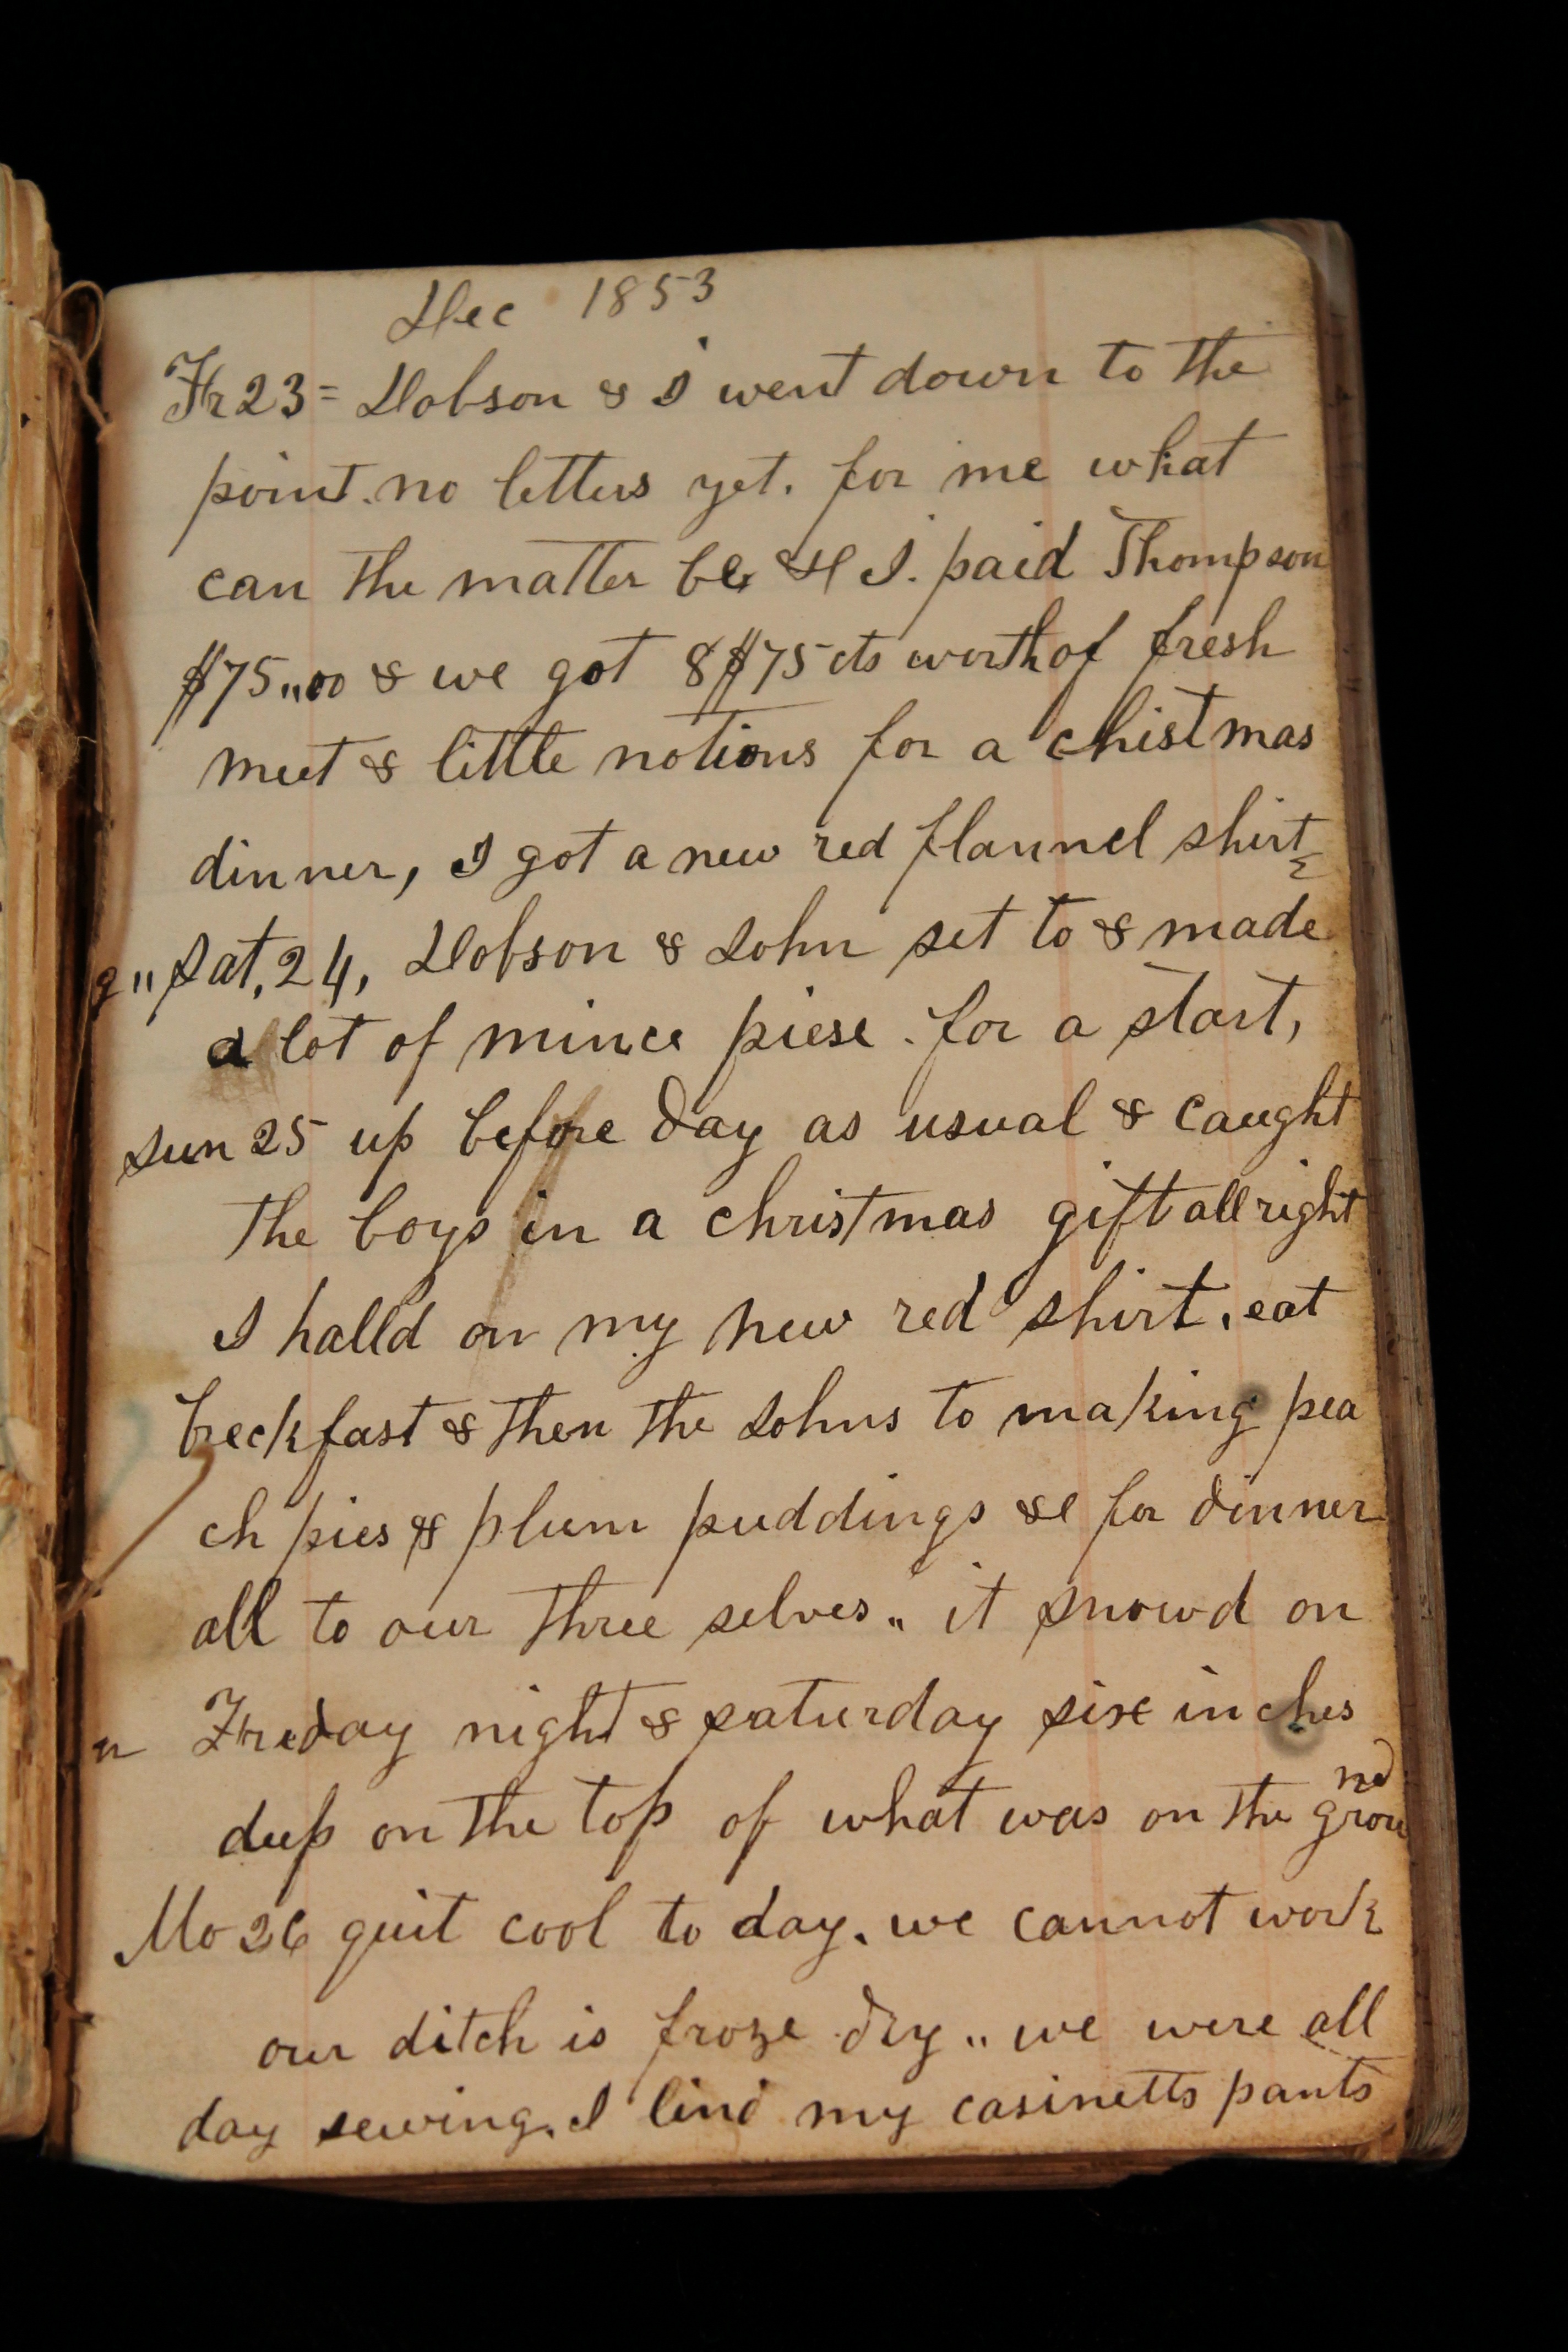 Dec 1853
Fr 23 = Dobson & I went down to the
point. no letters yet. for me what
can the matter be & I. paid Thompson
$75,,00 & we got 8$75 cts worth of fresh
meet & little notions for a chistmas
dinner, I got a new red flannel shirt
g " Sat, 24, Dobson & John set to & made
a lot of mince piese. for a start,
Sun 25 up before day as usual & caught
the boys in a christmas gift all right
I halld on my new red shirt. eat
breckfast & then the Johns to making pea
ch pies & plum puddings &c for dinner
all to our three selves ,, it snowd on
n Friday night & saturday six inches
deep on the top of what was on the grou
nd
Mo 26 quit cool to day. we cannot work
our ditch is froze dry ,, we were all
day sewing. I lind my casinetts pants